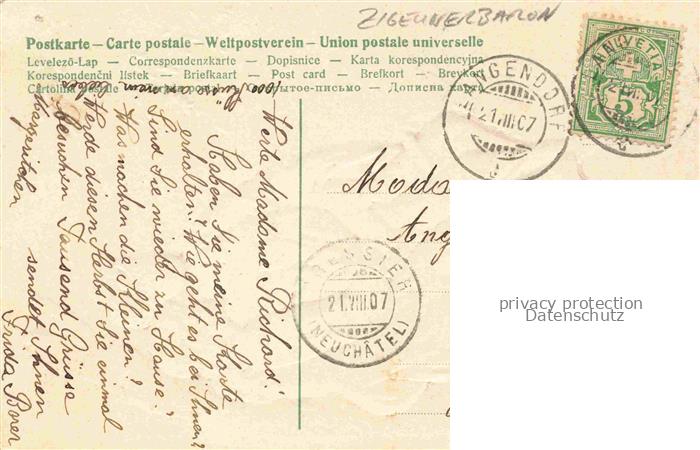 ZIGEUNERBARON
Postkarte – Carte postale – Weltpostverein – Union postale universelle
Levelező-Lap — Correspondenzkarte — Dopisnice — Karta korespondencyjna
Korespondenční listek — Briefkaart — Post card — Brefkort — Brevkort
Cartolina postale
тое письмо — Дописна карта
HELVETIA
5
21.VIII.07
CRESSIER
21.VIII.07
(NEUCHÂTEL)
Mada
Ang
Werte Madame Richard!
Haben Sie meine Karte
erhalten? Wie geht es bei Ihnen?
Sind Sie wieder zu Hause?
Was machen die Kleinen?
Werde diesen Herbst Sie einmal
besuchen. Tausend Grüsse
sendet Ihnen
Frida Borer
1000 Küsse
privacy protection
Datenschutz